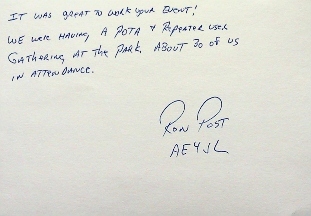 IT WAS GREAT TO WORK YOUR EVENT!
WE WERE HAVING A POTA & REPEATER USER
GATHERING AT THE PARK. ABOUT 30 OF US
IN ATTENDANCE.
RON POST
AE4JL